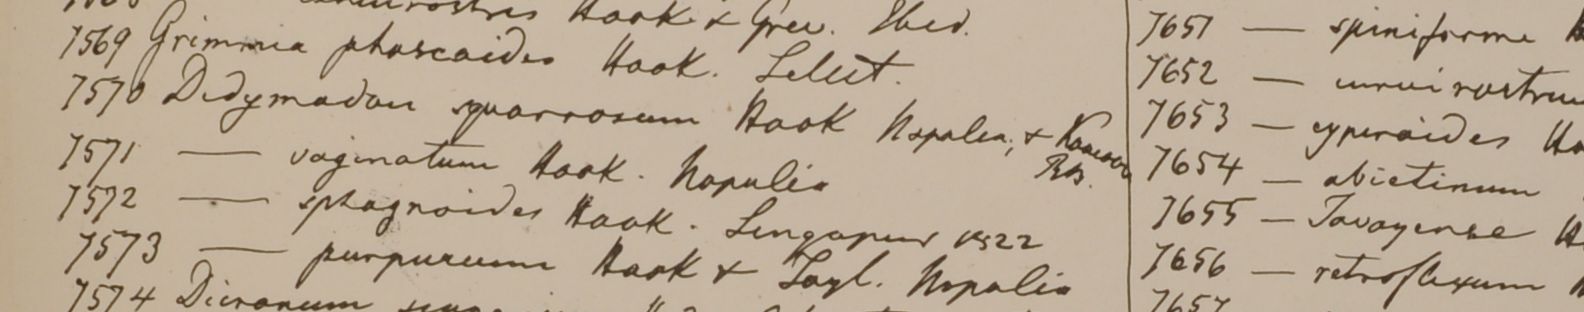 curvirostris Hook & Grev. Ibid.
7569 Grimmia phascoides Hook. Selut.
7570 Didymodon squarrosum Hook Napalia, &
7571 — vaginatum Hook. Napalia
7572 — sphagnoides Hook. Singapur 1822
7573 — purpureum Hook & Tayl. Napalia
7574 Dicranum
7651 — spiniforme
7652 — curvirostrum
7653 — cyperoides
7654 — abietinum
7655 — Tavoyense
7656 — retroflexum
7657